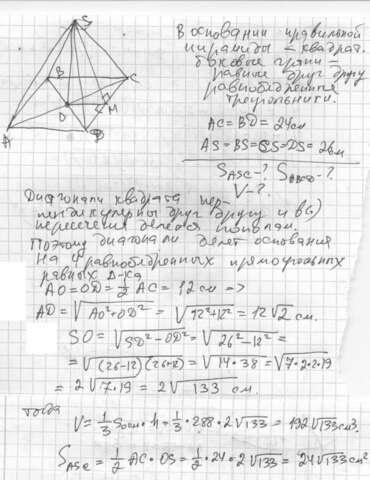 S
В основании правильной
пирамиды – квадрат.
боковые грани –
равные друг другу
равнобедренные
треугольники.
B
C
O
M
A
D
AC = BD = 24см
AS = BS = CS = DS = 26см
S_ASC - ? S_ABCD - ?
V - ?
Диагонали квадрата пер-
пендикулярны друг другу и в
пересечения делятся пополам.
Поэтому диагонали делят основания
на 4 равнобедренных прямоугольных
равных Δ-ка
AO = OD = 1/2 AC = 12 см =>
AD = √(AO² + OD²) = √(12² + 12²) = 12√2 см.
SO = √(SD² - OD²) = √(26² - 12²) =
= √((26-12)(26+12)) = √(14·38) = √(7·2·2·19)
= 2√(7·19) = 2√133 см.
тогда
V = 1/3 Sосн · h = 1/3 · 288 · 2√133 = 192√133 см³.
S_ASC = 1/2 AC · OS = 1/2 · 24 · 2√133 = 24√133 см²